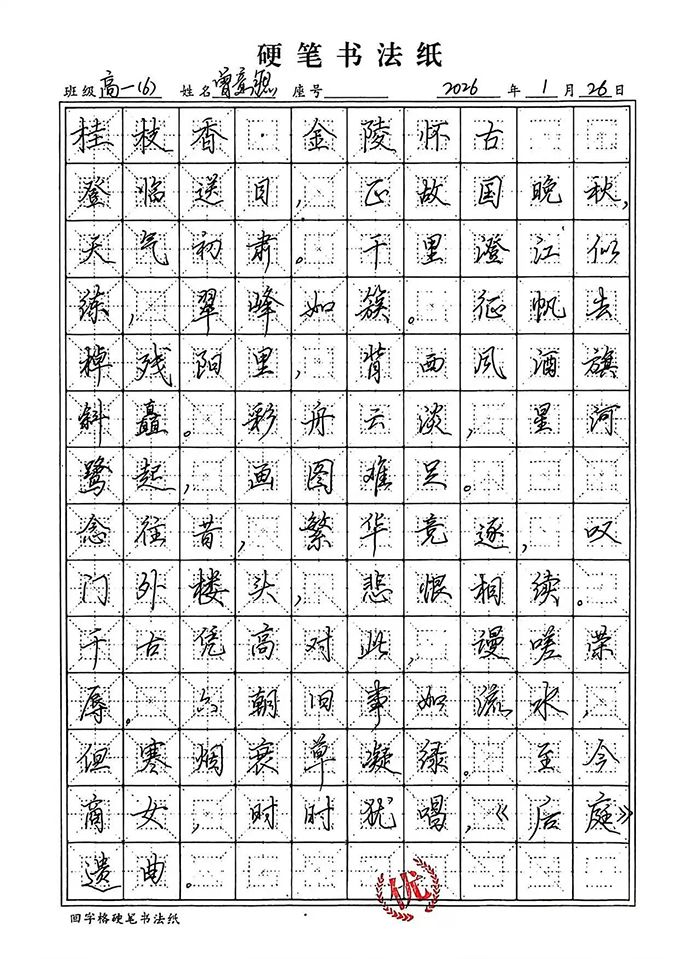 硬笔书法纸
班级 高一(6) 姓名 曾 座号 2026 年 1 月 26 日
桂枝香·金陵怀古
登临送目，正故国晚秋，
天气初肃。千里澄江似
练，翠峰如簇。征帆去
棹残阳里，背西风酒旗
斜矗。彩舟云淡，星河
鹭起，画图难足。
念往昔，繁华竞逐，叹
门外楼头，悲恨相续。
千古凭高对此，谩嗟荣
辱。六朝旧事如流水，
但寒烟衰草凝绿。至今
商女，时时犹唱，《后庭》
遗曲。
优
回字格硬笔书法纸